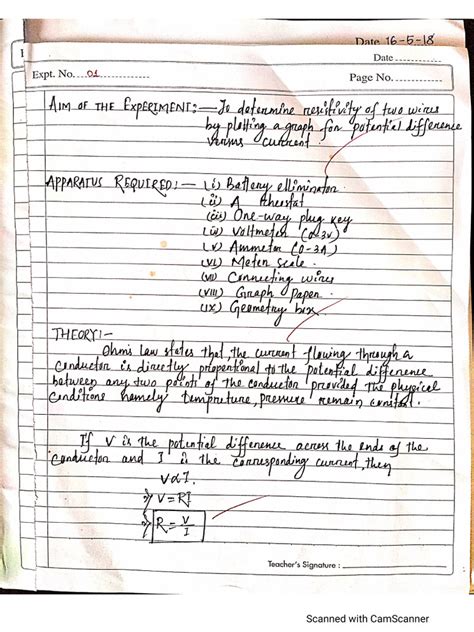 Date 16-5-18
Date
Expt. No. 01
Page No.
AIM OF THE EXPERIMENT:— To determine resitivity of two wires
by plotting a graph for potential difference
versus current.
APPARATUS REQUIRED:— (i) Battery elliminator
(ii) A Rheostat
(iii) One-way plug key
(iv) Voltmeter (0-3v)
(v) Ammeter (0-3A)
(vi) Meter Scale.
(vii) Connecting wires
(viii) Graph Paper.
(ix) Geometry box
THEORY:—
Ohm's Law states that the current flowing through a
conductor is directly propotional to the potential difference
between any two points of the conductor provided the physical
conditions namely tempreture, pressure remain constant.
If V is the potential difference across the ends of the
conductor and I is the corresponding current, then
V∝I.
⇒ V=RI
⇒ R = V/I
Teacher's Signature :
Scanned with CamScanner